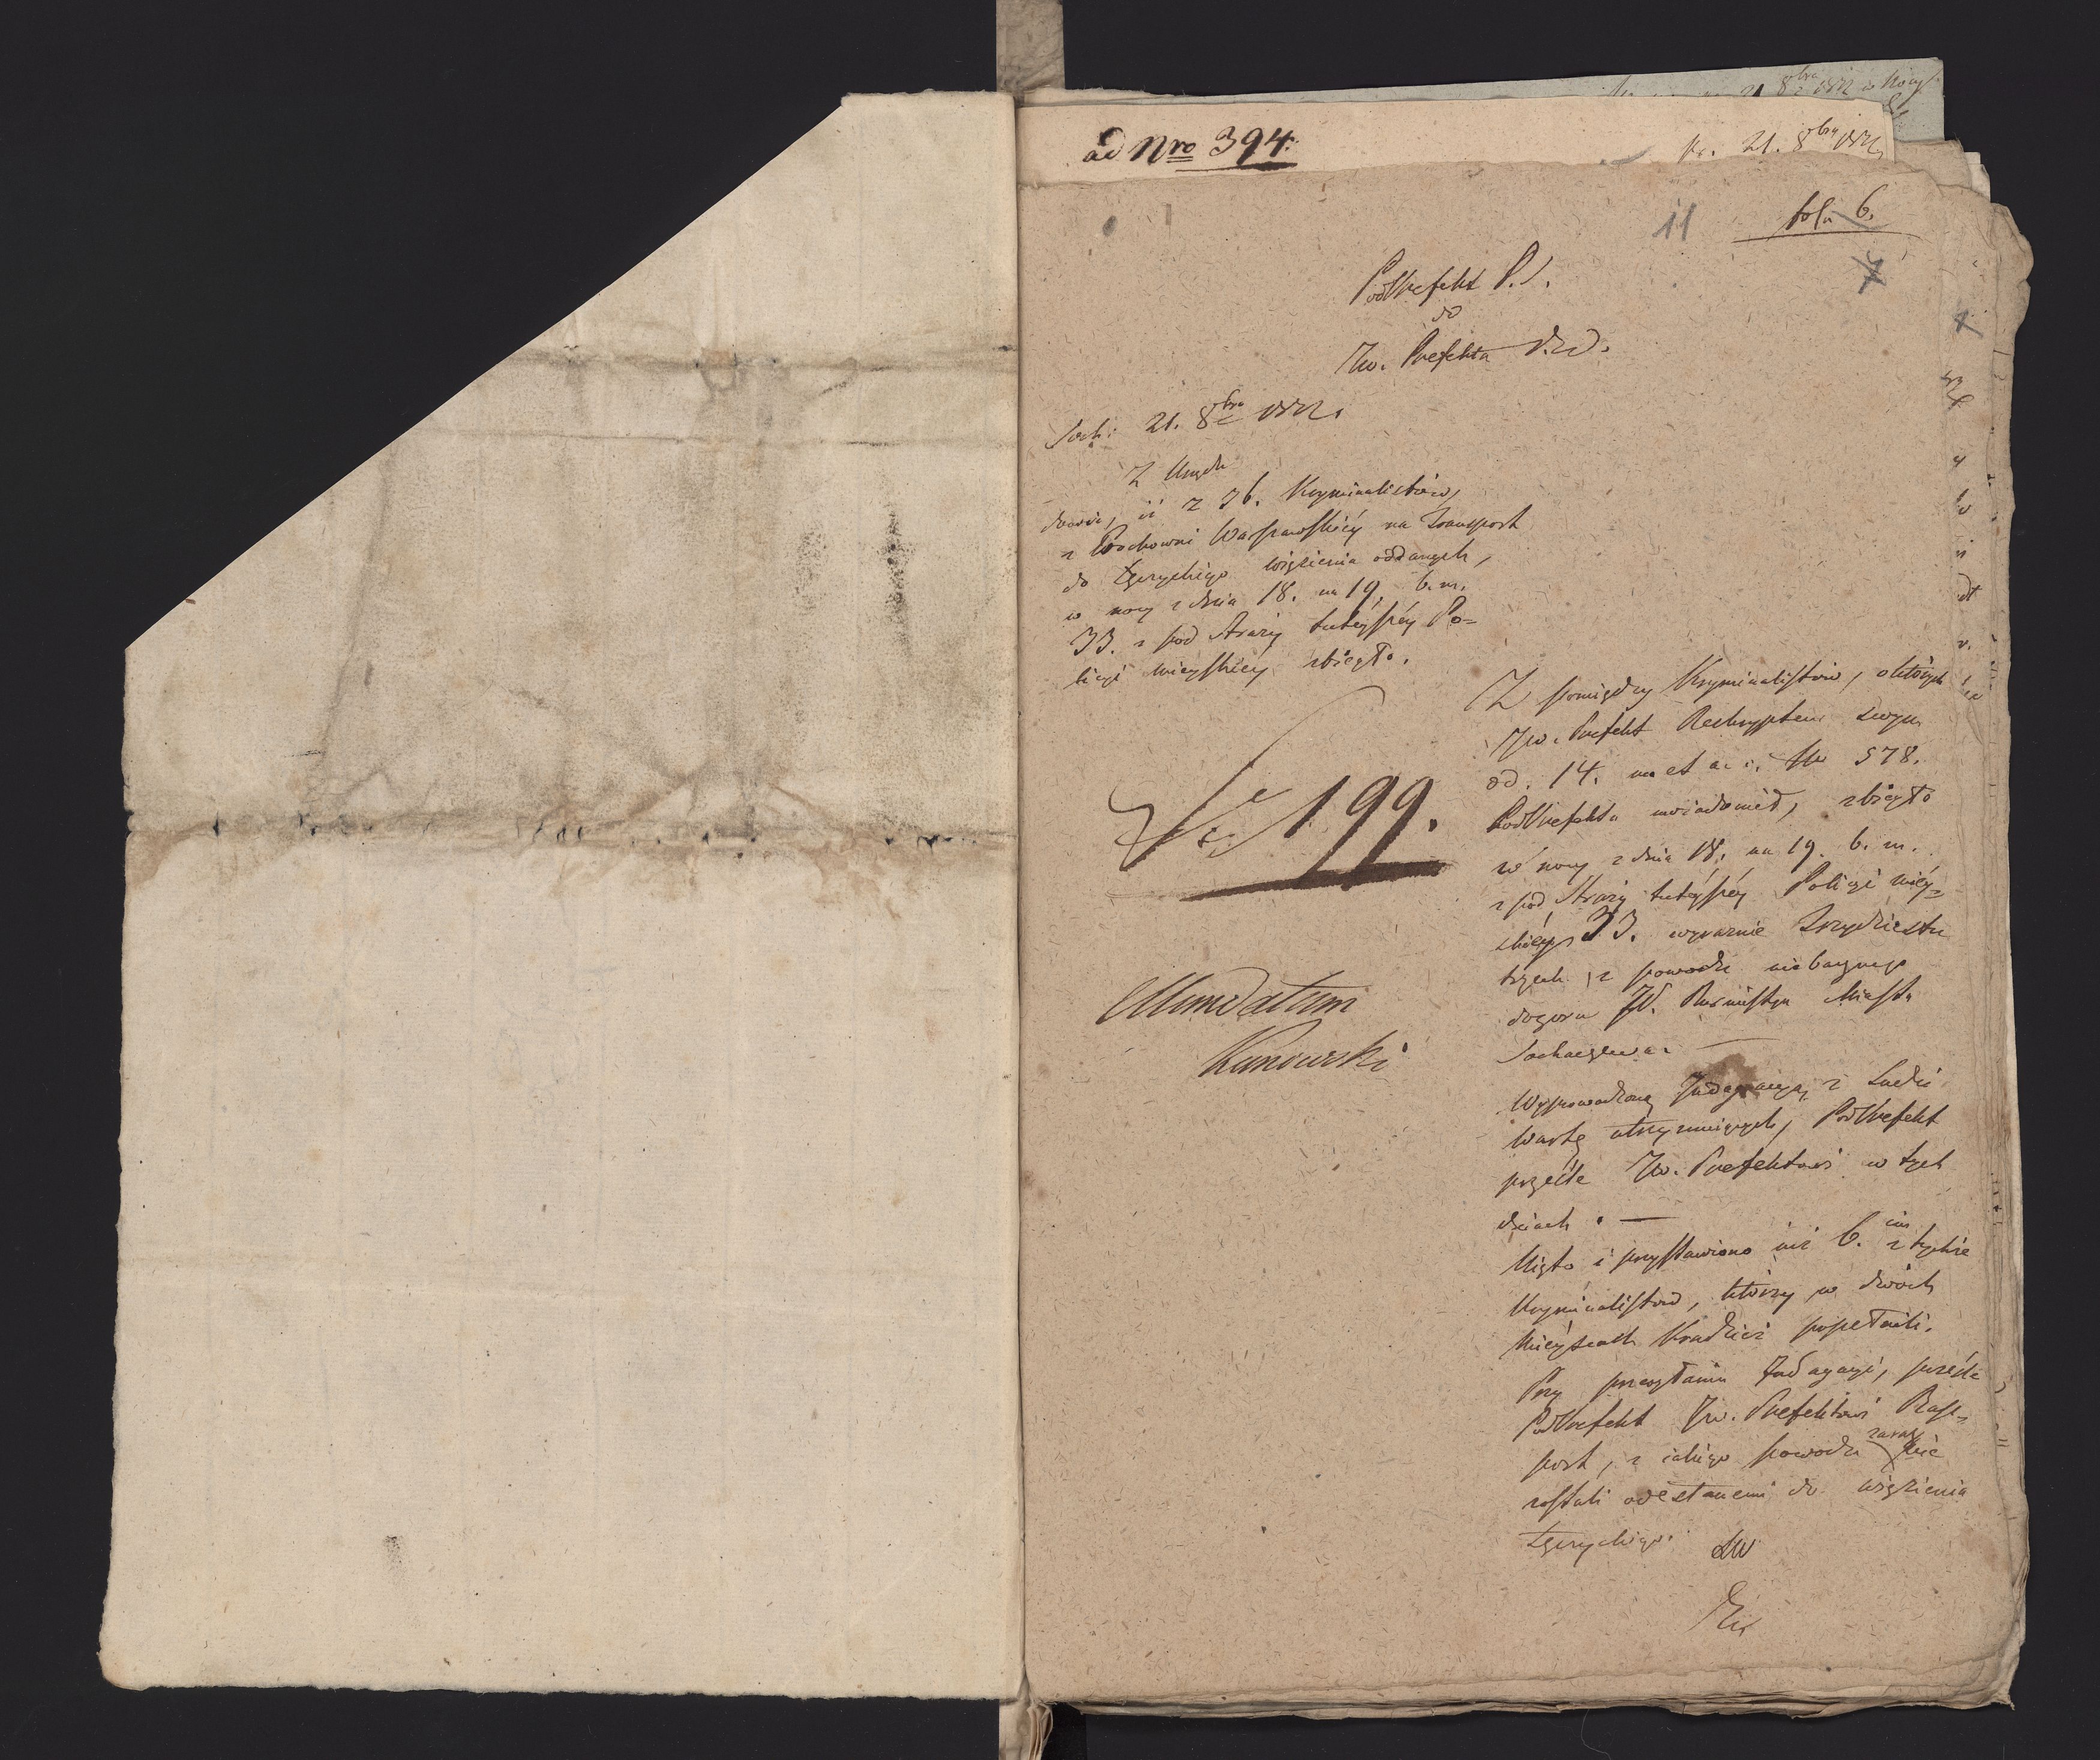 ad Nro 394.
21. 8bra 1812
11 fol. 6.
7
PodPrefekt P. S.
do
JW. Prefekta D. W.
Soch: 21. 8bra 1812.
Z Urzędu
donosi, iż z 36. Kryminalistów,
z Prochowni Warszawskiéy na Transport
do Łęczyckiego więzienia oddanych,
w nocy z dnia 18. na 19. b. m.
33. z pod Straży tuteyszéy Po=
licyi mieyskiéy zbiegło.
Nro 199.
Mundatum
Kunowski
Z pomiędzy Kryminalistów, o których
JW. Prefekt Reskryptem swym
od. 14. m. et a. c. Nro 578.
PodPrefekta uwiadomił, zbiegło
w nocy z dnia 18. na 19. b. m.
z pod Straży tuteyszéy Policyi miéy=
skiéy 33. wyraźnie Trzydziestu
trzech, z powodu niebacznego
dozoru W. Burmistrza Miasta
Sochaczewa. —
Wyprowadzoną Indagacyą z Ludzi
wartę utrzymuiących, PodPrefekt
prześle JW. Prefektowi w tych
dniach. —
Uięto i przystawiono iuż 6. z tychże
Kryminalistów, którzy w dwóch
Mieyscach Kradzież popełnili.
Przy przesłaniu Indagacyi, prześle
PodPrefekt JW. Prefektowi Rap=
port, z iakiego powodu zaraz nie
zostali odesłanemi do więzienia
Łęczyckiego.